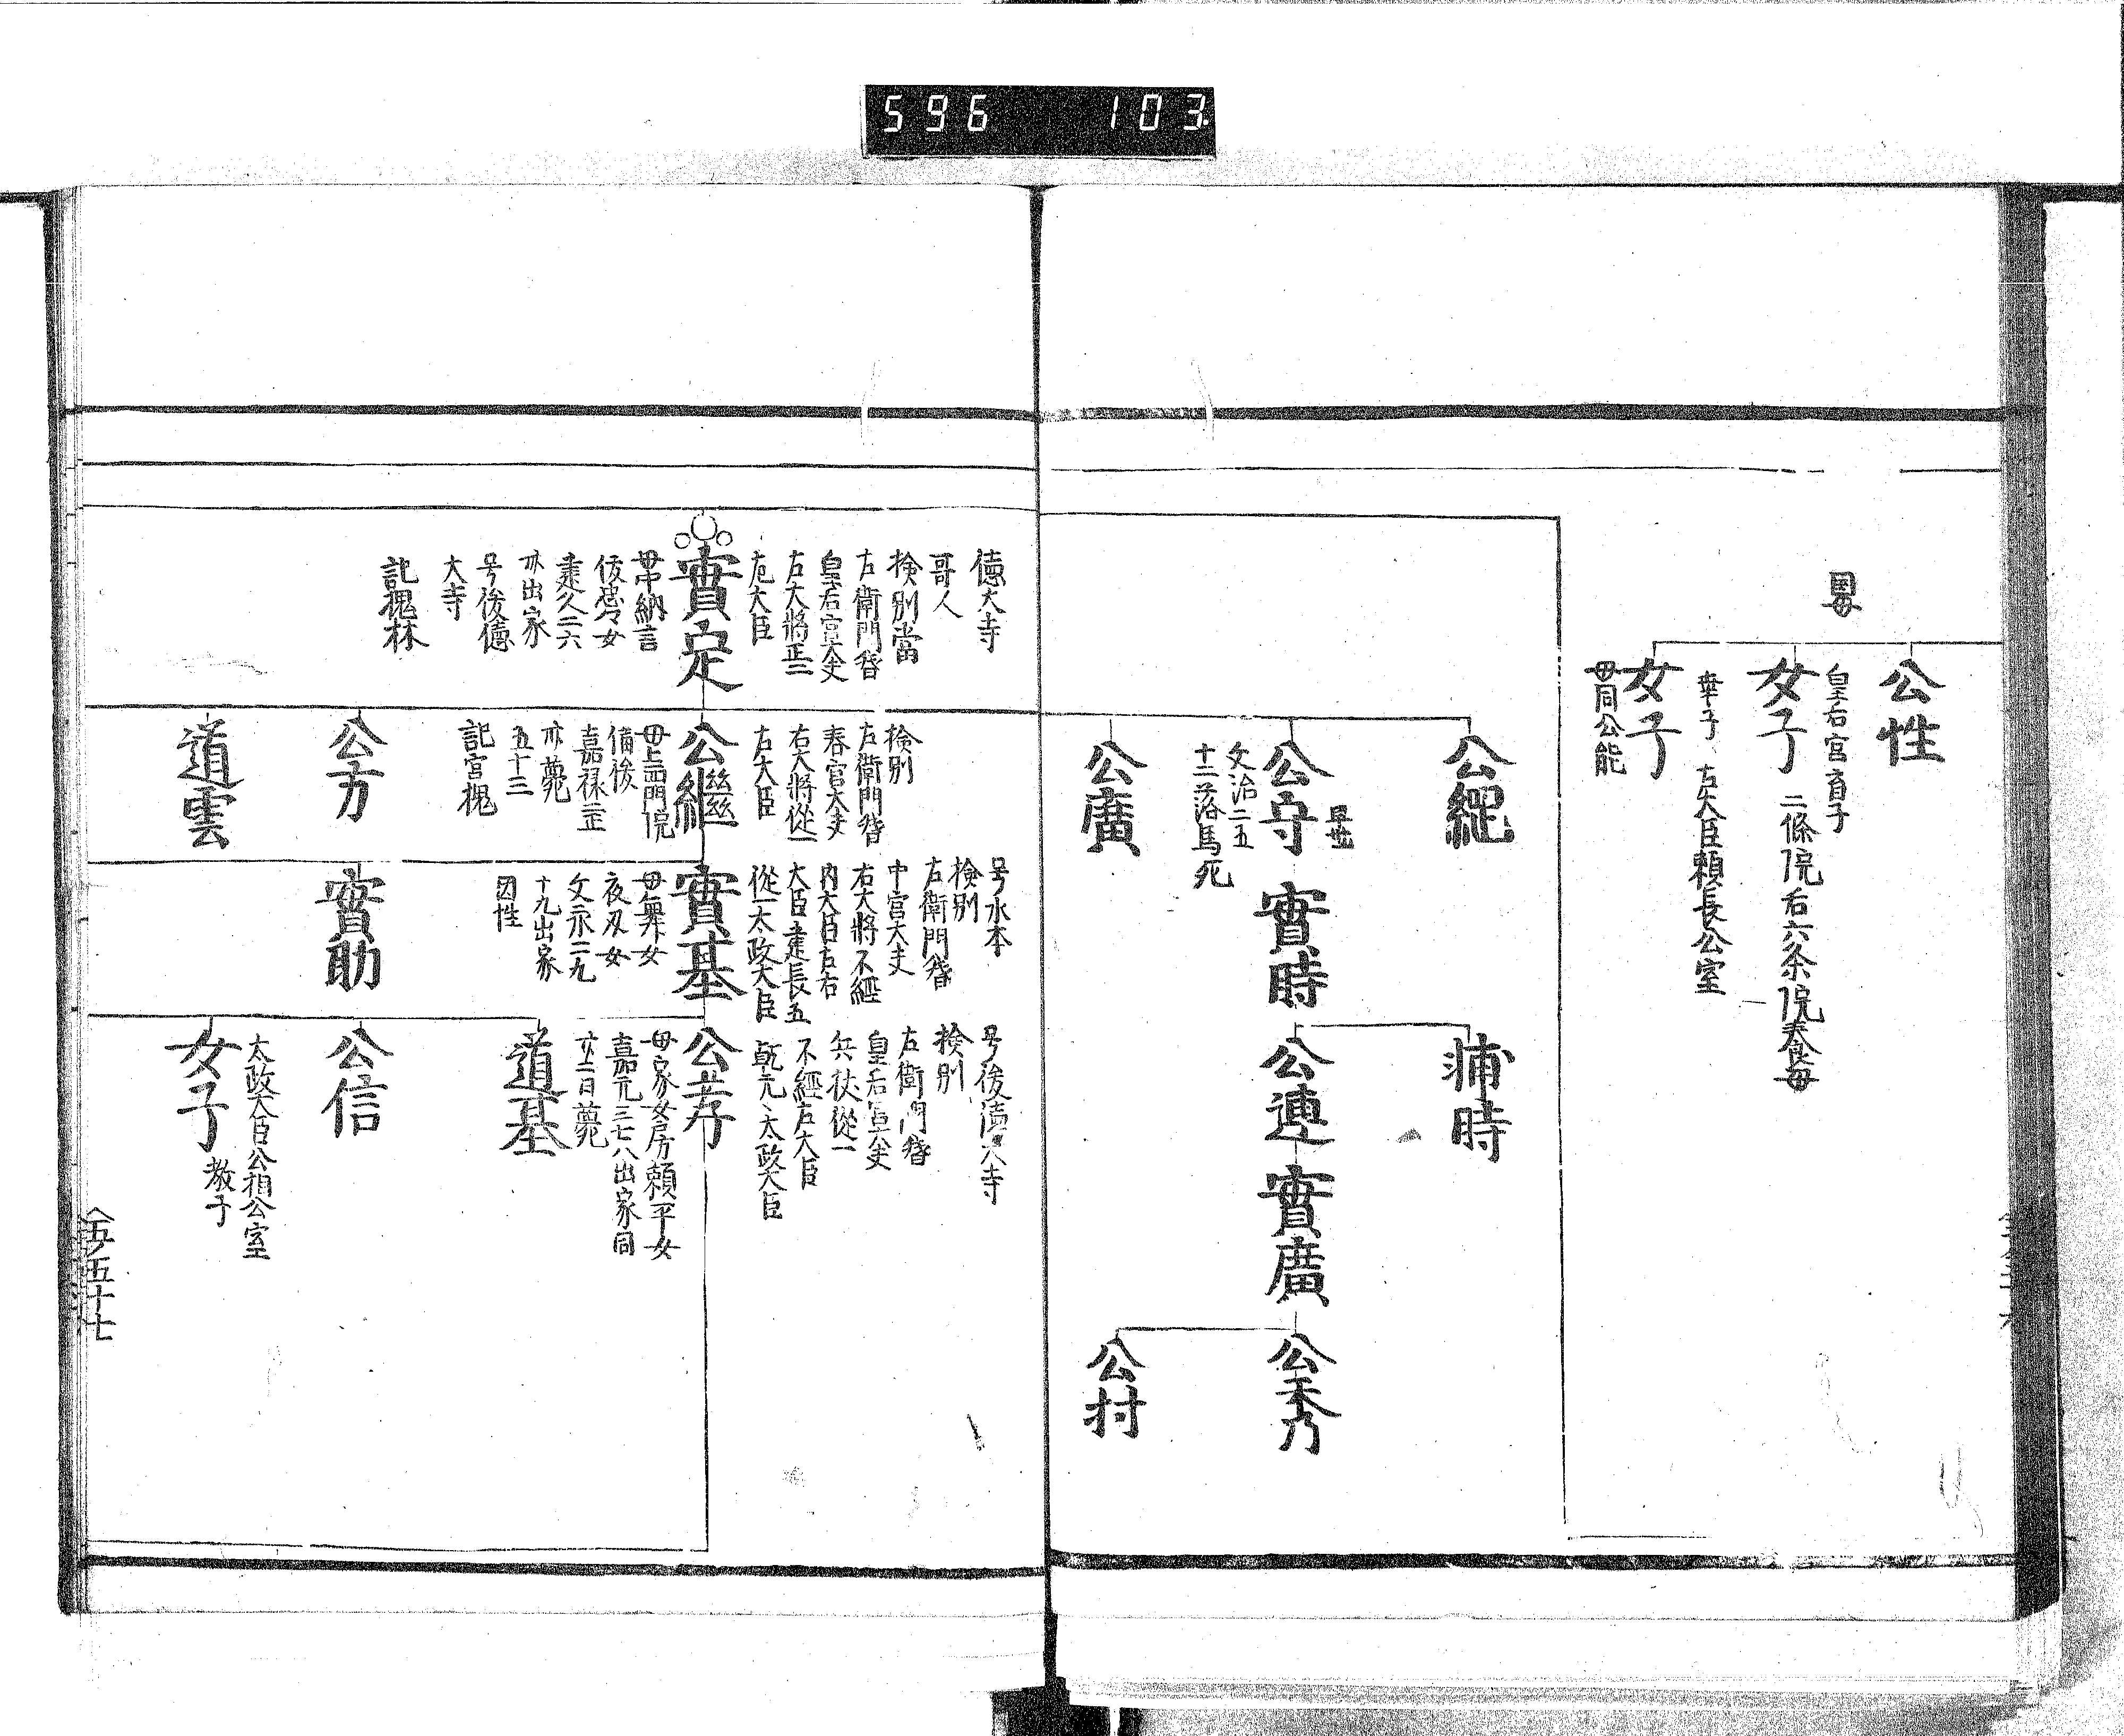 596 103
公性
皇后宮育子
女子
二條院后六条院養母
幸子 左大臣頼長公室
女子
母同公能
公継
早世
公守
文治二五
十二落馬死
公廣
實時
痛時
公連
實廣
公秀
公村
德大寺
哥人
検別當
左衛門督
皇后宮大夫
右大将正二
左大臣
實定
母中納言
俊忠女
建久二六
出家
号後德
大寺
記槐林
検別
左衛門督
春宮大夫
右大将從一
左大臣
公繼
母上西門院
備後
嘉禄三正
薨
五十三
記宮槐
公方
道雲
号水本
検別
左衛門督
中宮大夫
右大将不經
内大臣左右
大臣建長五
從一太政大臣
實基
母舞女
夜叉女
文永二九
十九出家
因性
實助
号後德大寺
検別
左衛門督
皇后宮大夫
兵状從一
不經左大臣
乾元、太政大臣
公孝
母家女房頼平女
嘉元三七八出家同
十二日薨
道基
公信
太政大臣公相公室
女子
教子
五十七